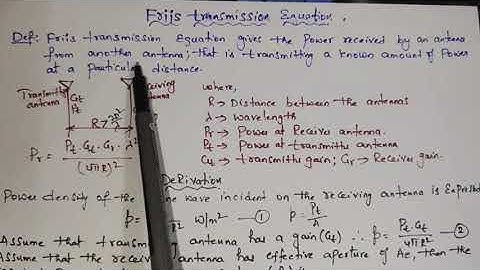 Friis transmission Equation.
Def: Friis transmission Equation gives the Power received by an antenna
from another antenna; that is transmitting a known amount of Power
at a particular distance.
Transmitting antenna
Gt
Pt
antenna
where,
R → Distance between the antennas
λ → wavelength
Pr → Power at Receiver antenna.
Pt → Power at transmitter antenna
Gt → transmitter gain; Gr → Receiver gain.
Pr = Pt. Gt. Gr. λ² / (4πR)²
Derivation
Power density of the wave incident on the receiving antenna is Expressed
W/m² — ① p = Pt/A
Assume that transm antenna has a gain (Gt) ∴ p = Pt. Gt / 4πR² — ②
Assume that the receiving antenna has effective aperture of Ae, then the